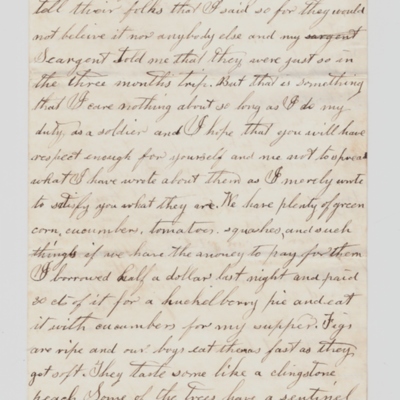 tell their folks that I said so for they would
not beleive it nor anybody else and my sargent
Seargent told me that they were just so in
the three months trip. But that is something
that I care nothing about so long as I do my
duty, as a soldier and I hipe that you will have
respect enough for yourself and me not to spread
what I have wrote about them as I merely wrote
to satisfy you what they are. We have plenty of green
corn, cucumbers, tomatoes, squashes, and such
things if we have the money to pay for them
I borrowed half a dollar last night and paid
30 cts of it for a huckelberry pie and eat
it with cucumbers for my supper. Figs
are ripe and our boys eat them as fast as they
get soft. They taste some like a clingstone
peach. Some of the trees have a sentinel